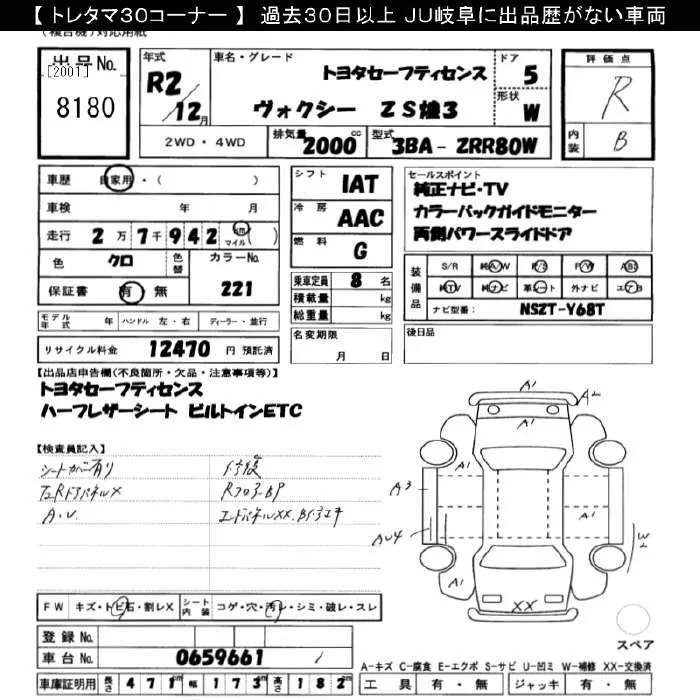 【 トレタマ30コーナー 】 過去30日以上 JU岐阜に出品歴がない車両
出品No.
[2001]
8180
年式
R2/12月
車名・グレード
トヨタセーフティセンス
ヴォクシー ZS煌3
ドア
5
形状
W
評価点
R
内装
B
2WD ・ 4WD
排気量
2000 cc
型式
3BA - ZRR80W
車歴 自家用・( )
車検 年 月
走行 2万7千942 km マイル( )
色 クロ 色替 カラーNo. 221
保証書 有 ・ 無
シフト IAT
冷房 AAC
燃料 G
乗車定員 8 名
積載量 kg
総重量 kg
セールスポイント
純正ナビ・TV
カラーバックガイドモニター
両側パワースライドドア
装備品
S/R 純A/W P/S P/W ABS
純TV 純ナビ 革シート 外ナビ エアB
ナビ型番: NSZT-Y68T
モデル年式 年 ハンドル 左・右 ディーラー・並行
リサイクル料金 12470 円 預託済
名変期限
月 日
後日品
【出品店申告欄(不良箇所・欠品・注意事項等)】
トヨタセーフティセンス
ハーフレザーシート ビルトインETC
【検査員記入】
シートカバー有り 修復
A.U.
A1
A2
A1
A1
A3
A1
AU4
W2
A1
XX
スペア
FW キズ・トビ石・割レX シート内装 コゲ・穴・汚レ・シミ・破レ・スレ
登録No.
車台No. 0659661
車庫証明用 長さ 471 幅 173 高さ 182
A-キズ C-腐食 E-エクボ S-サビ U-凹ミ W-補修 XX-交換済
工具 有・無 ジャッキ 有・無